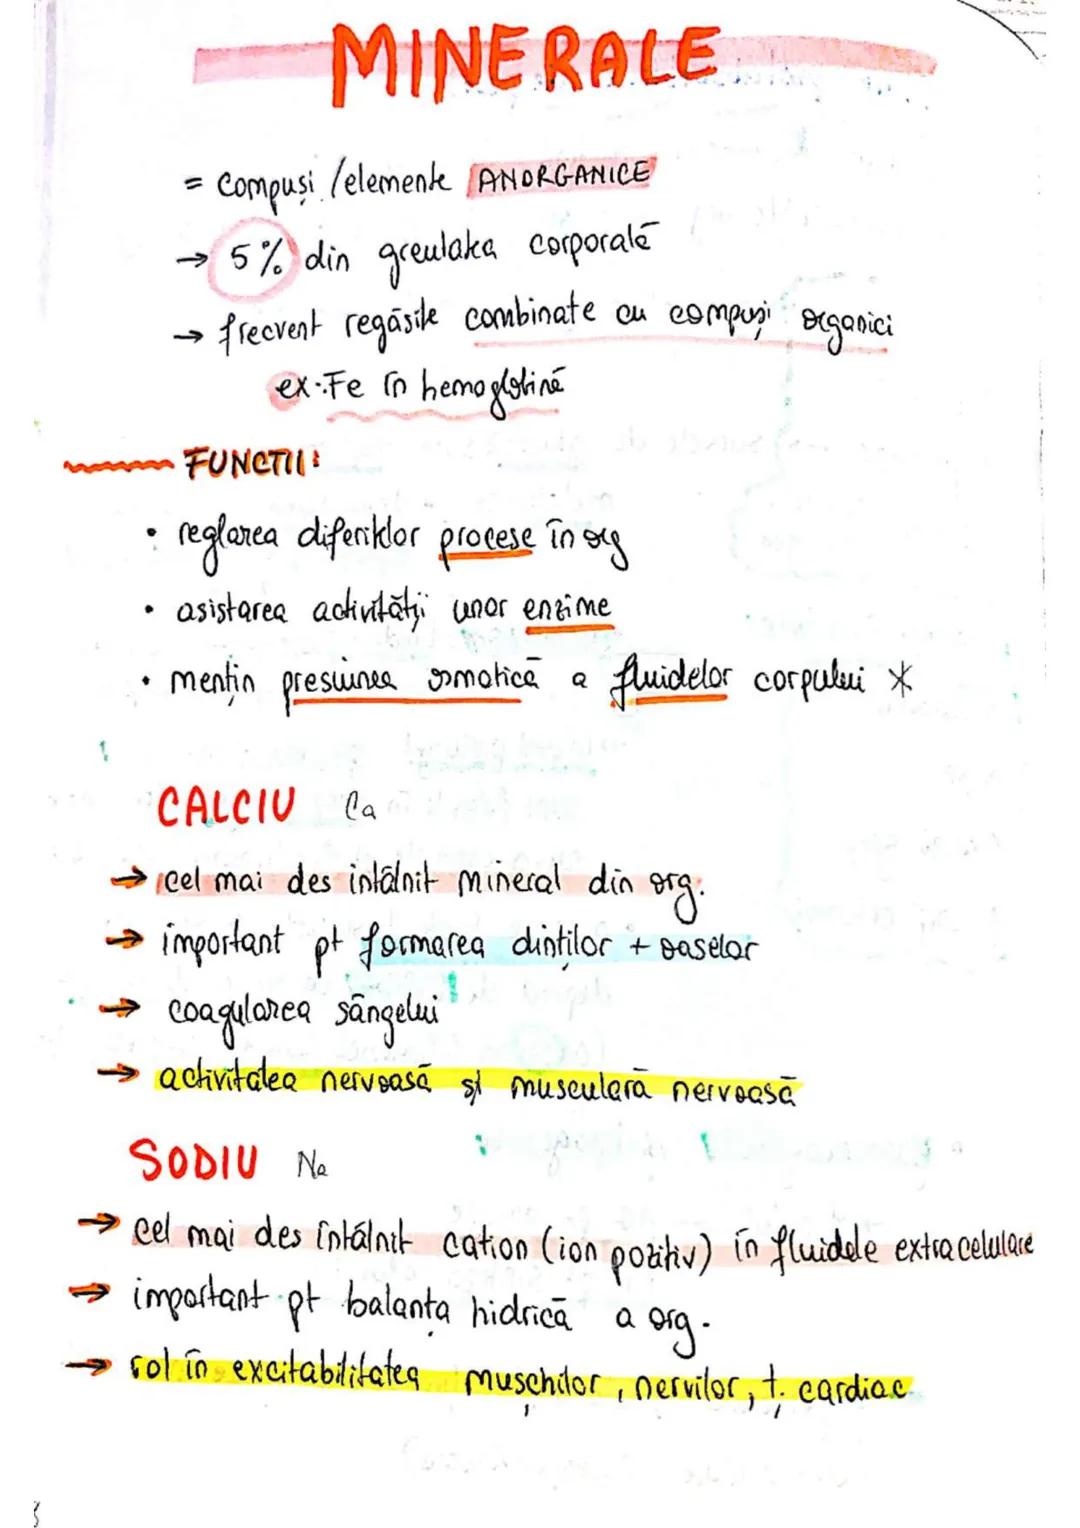 MINERALE
= compuși /elemente ANORGANICE
→ 5% din greutatea corporală
→ frecvent regăsite combinate cu compuși organici
ex: Fe în hemoglobină
FUNCTII:
• reglarea diferitelor procese în org
• asistarea activității unor enzime
• mențin presiunea osmotică a fluidelor corpului *
CALCIU Ca
→ cel mai des întâlnit mineral din org.
→ important pt formarea dinților + oaselor
→ coagularea sângelui
→ activitatea nervoasă și musculară nervoasă
SODIU Na
→ cel mai des întâlnit cation (ion pozitiv) în fluidele extracelulare
→ important pt balanța hidrică a org.
→ rol în excitabilitatea mușchilor, nervilor, ț. cardiac